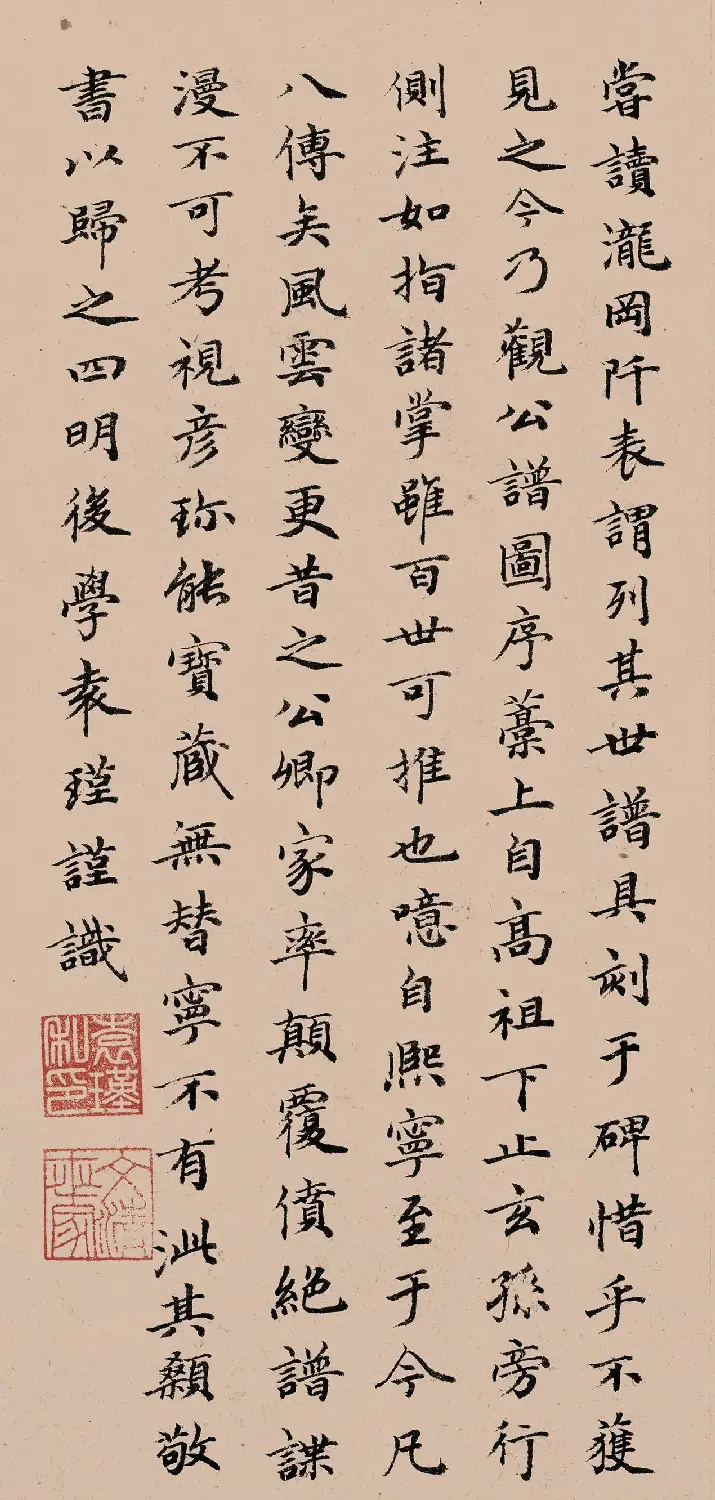 嘗讀瀧岡阡表謂列其世譜具刻于碑惜乎不獲
見之今乃觀公譜圖序藁上自髙祖下止玄孫旁行
側注如指諸掌雖百世可推也噫自熈寧至于今凡
八傳矣風雲變更昔之公卿家率顛覆僨絕譜諜
漫不可考視彦珎能寶蔵無替寧不有泚其顙敬
書以歸之四明後學袁瑾謹識
袁瑾私印